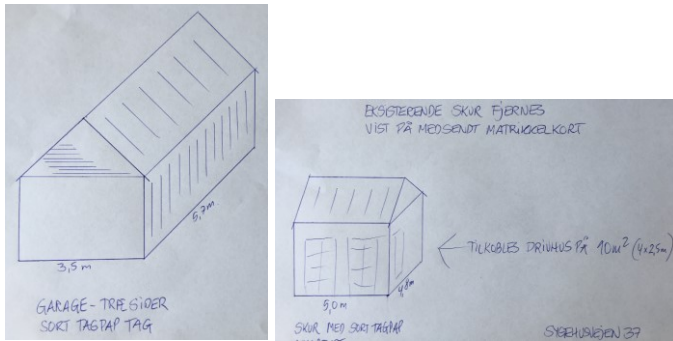 3,5 m
5,7m
GARAGE - TRÆSIDER
SORT TAGPAP TAG
EKSISTERENDE SKUR FJERNES
VIST PÅ MEDSENDT MATRIKKELKORT
TILKOBLES DRIVHUS PÅ 10m² (4x2,5m)
5,0m
4,8m
SKUR MED SORT TAGPAP
SYGEHUSVEJEN 37